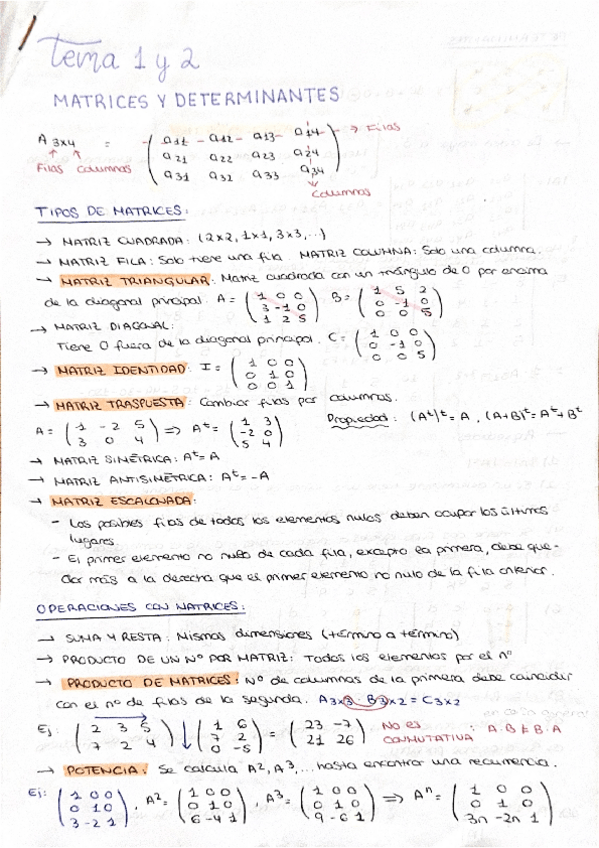 Tema 1 y 2
MATRICES Y DETERMINANTES
A 3x4 = ( a11 - a12 - a13 - a14 ) → Filas
a21 a22 a23 a24
a31 a32 a33 a34
Filas Columnas
Columnas
TIPOS DE MATRICES:
→ MATRIZ CUADRADA: (2x2, 1x1, 3x3,...)
→ MATRIZ FILA: Solo tiene una fila MATRIZ COLUMNA: Solo una columna.
→ MATRIZ TRIANGULAR: Matriz cuadrada con un triángulo de 0 por encima
de la diagonal principal. A = ( 1 0 0 / 3 -1 0 / 1 2 5 ) B = ( 1 5 2 / 0 -1 0 / 0 0 5 )
→ MATRIZ DIAGONAL:
Tiene 0 fuera de la diagonal principal. C = ( 1 0 0 / 0 -1 0 / 0 0 5 )
→ MATRIZ IDENTIDAD: I = ( 1 0 0 / 0 1 0 / 0 0 1 )
→ MATRIZ TRASPUESTA: Cambiar filas por columnas.
A = ( 1 -2 5 / 3 0 4 ) ⇒ Aᵗ = ( 1 3 / -2 0 / 5 4 ) Propiedad: (Aᵗ)ᵗ = A, (A+B)ᵗ = Aᵗ + Bᵗ
→ MATRIZ SIMÉTRICA: Aᵗ = A
→ MATRIZ ANTISIMÉTRICA: Aᵗ = -A
→ MATRIZ ESCALONADA:
- Las posibles filas de todos los elementos nulos deben ocupar los últimos
lugares.
- El primer elemento no nulo de cada fila, excepto la primera, debe que-
dar más a la derecha que el primer elemento no nulo de la fila anterior.
OPERACIONES CON MATRICES:
→ SUMA Y RESTA: Mismas dimensiones (término a término)
→ PRODUCTO DE UN Nº POR MATRIZ: Todos los elementos por el nº
→ PRODUCTO DE MATRICES: Nº de columnas de la primera debe coincidir
con el nº de filas de la segunda. A3x3 · B3x2 = C3x2
Ej: ( 2 3 5 / 7 2 4 ) ( 1 6 / 7 2 / 0 -5 ) = ( 23 -7 / 21 26 ) NO ES CONMUTATIVA: A·B ≠ B·A
→ POTENCIA: Se calcula A², A³,... hasta encontrar una recurrencia.
Ej: ( 1 0 0 / 0 1 0 / 3 -2 1 ), A² = ( 1 0 0 / 0 1 0 / 6 -4 1 ), A³ = ( 1 0 0 / 0 1 0 / 9 -6 1 ) ⇒ Aⁿ = ( 1 0 0 / 0 1 0 / 3n -2n 1 )